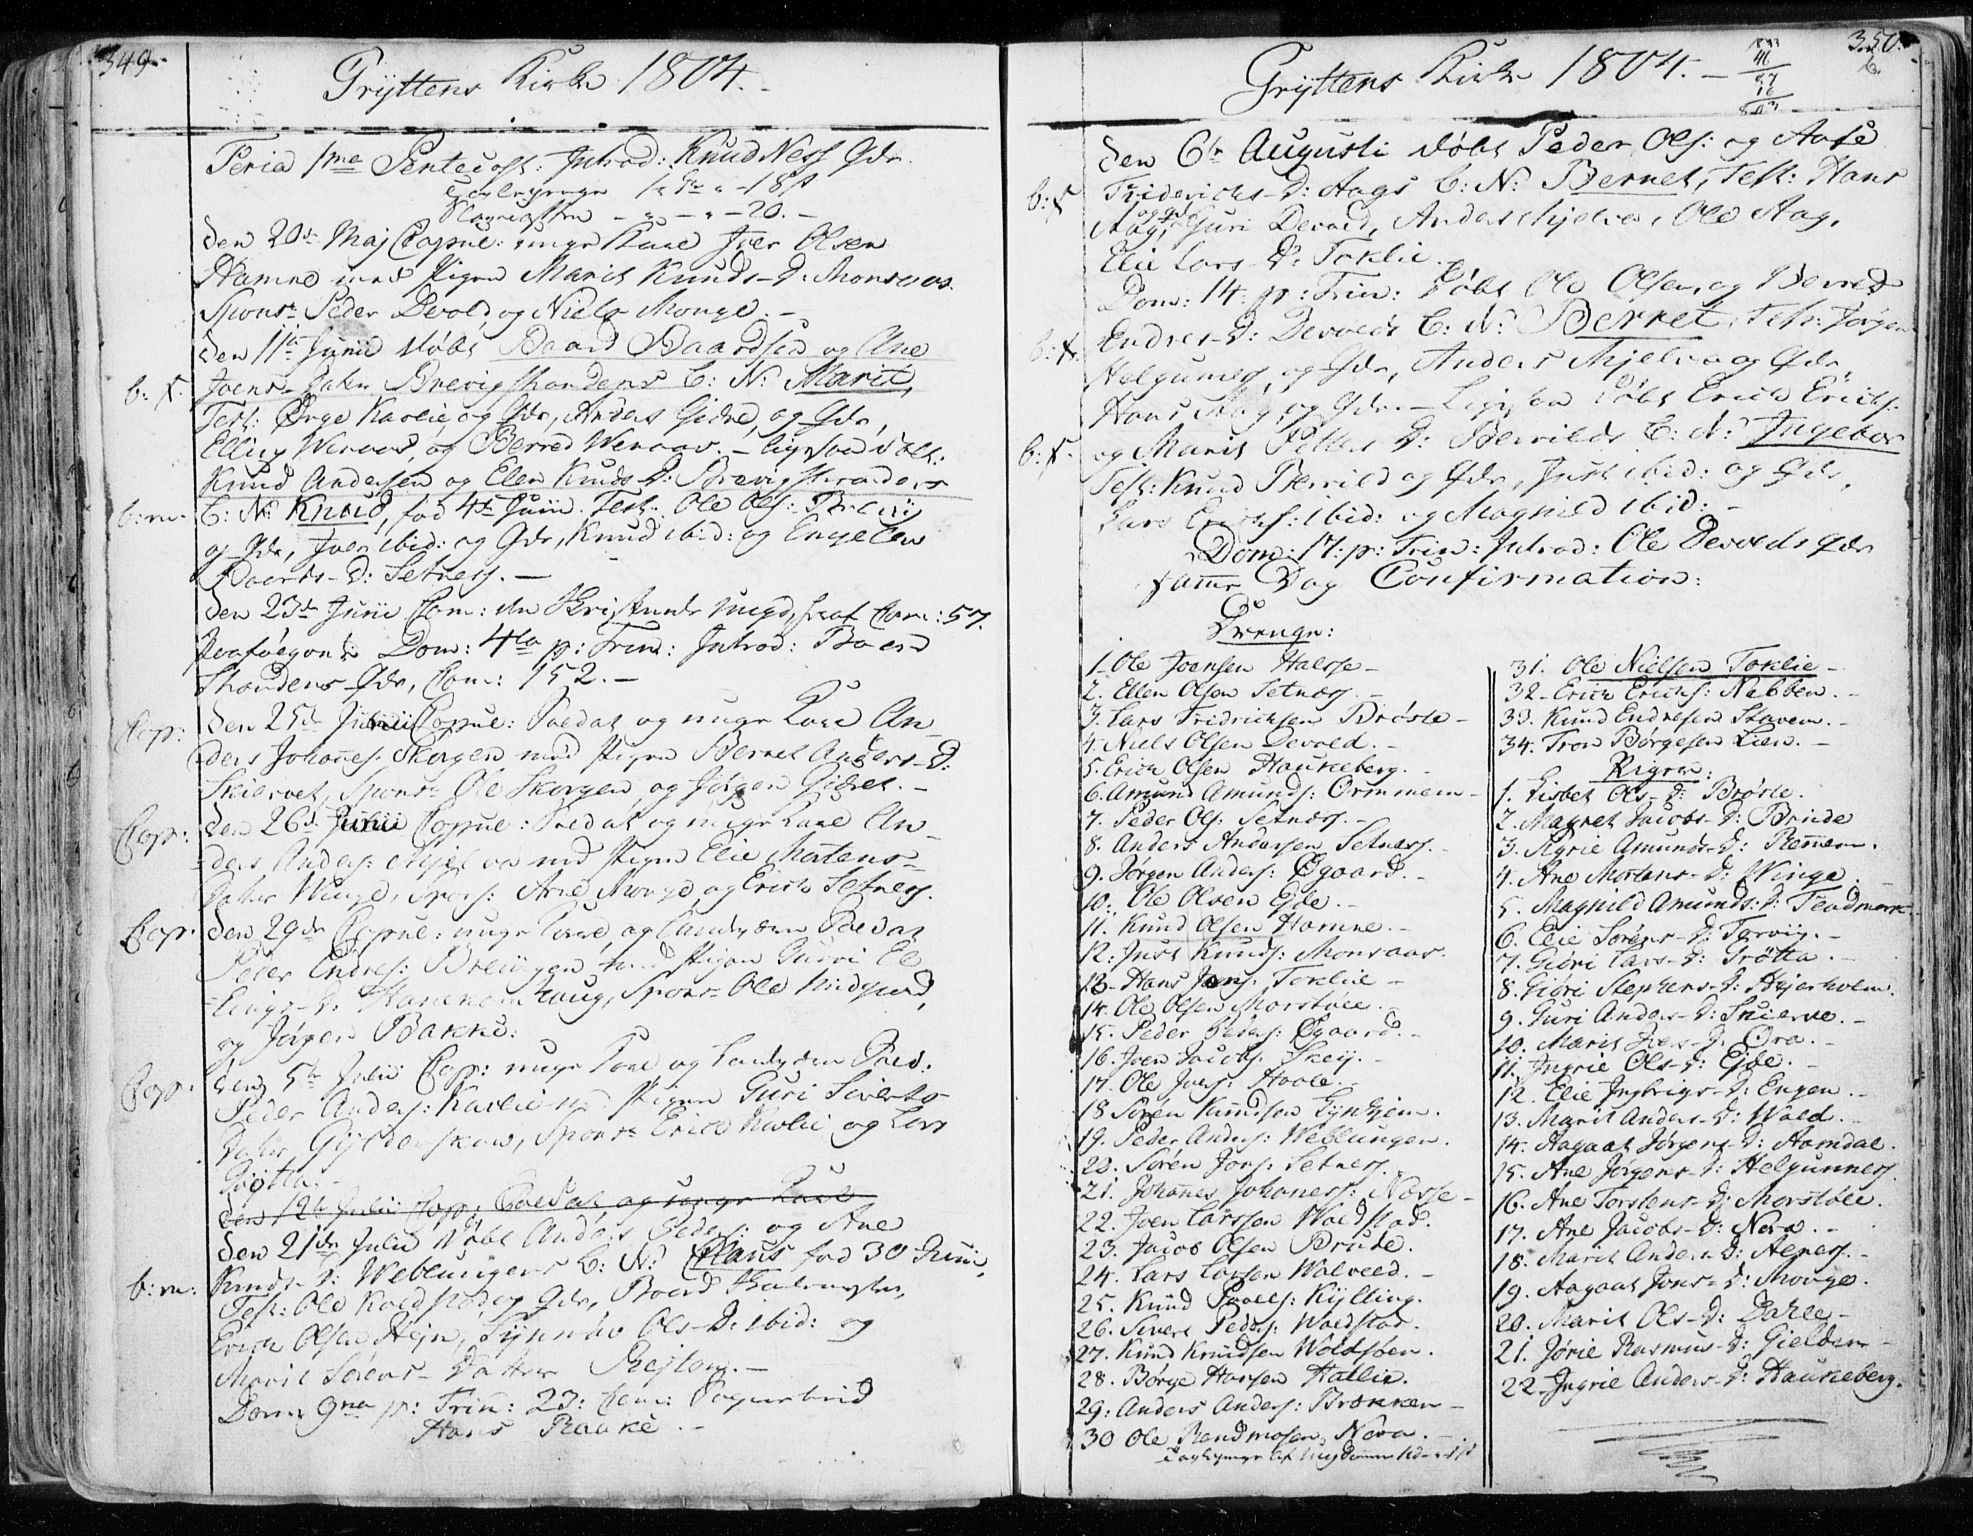 349.
Gryttens Kirke 1804.
Feria 1me Pentecost: Introd: Knud Ness Qdr.
1 18 ß
20.
den 20de Maj Copul: unge Karl Joer Olsen
Hamne med Pigen Marit Knuds-D: Monsaas.
Spons: Peder Devold og Niels Monge.
den 11te Junii døbt Baard Baardsen og Ane
b: f. Joens-Datter Brevigstrandens b: N: Marit,
Test: Ørge Karlie og Qdr, Anders Gidre, og Qdr,
Elling Weraas, og Berred Weraas. - Ligesaa døbt:
Knud Andersen og Elen Knuds D: Brevigstrandens
b: m. b: N: Knud, fød 4de Junii. Test: Ole Ols: Brevig
og Qdr, Joer ibid: og Qdr, Knud ibid: og Engelev
Baards-D: Setness.
den 23de Junii Com: 57.
Dom: 4ta p: Trin: Introd: Baard
Strandens Qdr, Com: 152.
Cop: den 25de Junii Copul: Soldat og unge Karl An-
ders Johannes: Skorgen med Pigen Bereet Anders-D:
Skiervet, Spons: Ole Skorgen og Jørgen Gidret.
Cop: den 26de Junii Copul: Soldat og unge Karl An-
ders Anders: Mjelva med Pigen Elie Mortens-
Datter Winge, Spons: Arne Monge, og Erich Setness.
Cop: den 29de Copul: unge Karl og Landværn Soldat
Peder Endres: Brevigen med Pigen Guri El-
lings-D: Hammenhaug, Spons: Ole
og Jørgen Bakke.
Cop: den 5te Julii Cop: unge Karl og Landværn Sold.
Peder Anders: Karlie med Pigen Guri Siverts
Datter Gyldenskow, Spons: Erich Karlie og Lars
Grøtta.
den 12te Julii Cop: Soldat og unge Karl
den 21de Julii døbt Anders Peders: og Ane
b: m: Knuds-D: Weblungens b: N: Claus fød 30 Junii,
Test: Ole Woldstad og Qdr, Baard
Erich Olsen Hejn, Synnøv Ols-D: ibid: og
Marit Sørens-Datter
Dom: 9na p: Trin: 23: Com:
Hans Raake.
350.
Gryttens Kirke 1804.
den 6te Augusti døbt Peder Ols: og Aase
b: f Friderichs-D: Aags b: N: Bernet, Test: Hans
Aag, og Qdr Guri Devold, Anders Mjelva, Ole Aag,
Elie Lars-D: Toklie.
Dom: 14. p: Trin: døbt Ole Olsen, og Berred
b: f. Endres-D: Devolds b: N: Berret, Test: Jørgen
Helgumes, og Qdr, Anders Mjelva og Qdr,
Hans Aag og Qdr. - Ligesaa døbt Erich Erichs:
b: f. og Marit Petters D: Bervilds b: N: Ingebor
Test: Knud Bervild og Qdr, Just ibid: og Qdr,
Lars Erichs: ibid: og Magnild ibid:
Dom: 17: p: Trin: Introd: Ole Devolds Qdr
samme Dag Confirmation:
Drenge:
1. Ole Joensen Halsse
2. Ellen Olsen Setness.
3. Lars Fridrichsen Brøste
4. Niels Olsen Devold.
5. Erich Olsen Haukeberg.
6. Amund Amunds: Ormmem
7. Peder Ols: Setness.
8. Anders Andersen Setness.
9. Jørgen Anders: Øgaard.
10. Ole Olsen Ejde.
11. Knud Olsen Hamne.
12. Just Knuds: Monsaas.
13. Hans Jons: Toklie
14. Ole Olsen Morstøle.
15. Peder Peders: Øgaard.
16. Joen Jacobs: Skeij.
17. Ole Joers: Hoole.
18 Søren Knudsen
19. Peder Anders: Weblungen.
20. Søren Jons: Setness.
21. Johannes Johaness: Næsse
22. Joen Larssen Woldstad.
23. Jacob Olsen Brude.
24. Lars Larsen
25. Knud Povels: Kylling.
26. Sivert Peders: Woldstad.
27. Knud Knudsen Woldsden.
28. Børge Hansen Hallie.
29. Anders Anders: Brokken
30 Ole Rendmosen Nøra.
31. Ole Nielsen Toklie
32. Erich Erichs: Nebben.
33. Knud Endresen Stavem.
34. Tron Børgesen Lien.
Piger:
1. Lisbet Ols-D: Brøste.
2. Magret Jacobs-D: Brude
3. Kyrie Amunds-D: Remem.
4. Ane Mortens-D: Winge.
5. Magnild Amunds:D: Fladmark.
6. Elie Sørens-D: Torvig.
7. Giøri Lars-D: Grøtta.
8. Giøri Stephens-D: Hejerholm.
9. Guri Anders-D: Skierve.
10. Marit Joers-D: Ora.
11. Ingrie Ols-D: Ejde.
12. Elie Ingbrigt-D: Engen
13. Marit Anders-D: Wold.
14. Aagaat Jørgens-D: Hamdal.
15. Ane Jørgens-D: Helgunness.
16. Ane Torstens-D: Morstøle.
17. Ane Jacobs-D: Nora.
18. Marit Anders D: Aeness.
19. Aagaat Jons-D: Monge.
20. Marit Ols-D: Dahle
21. Jørie Rasmus-D: Gielden
22. Ingrie Anders-D: Haukeberg.